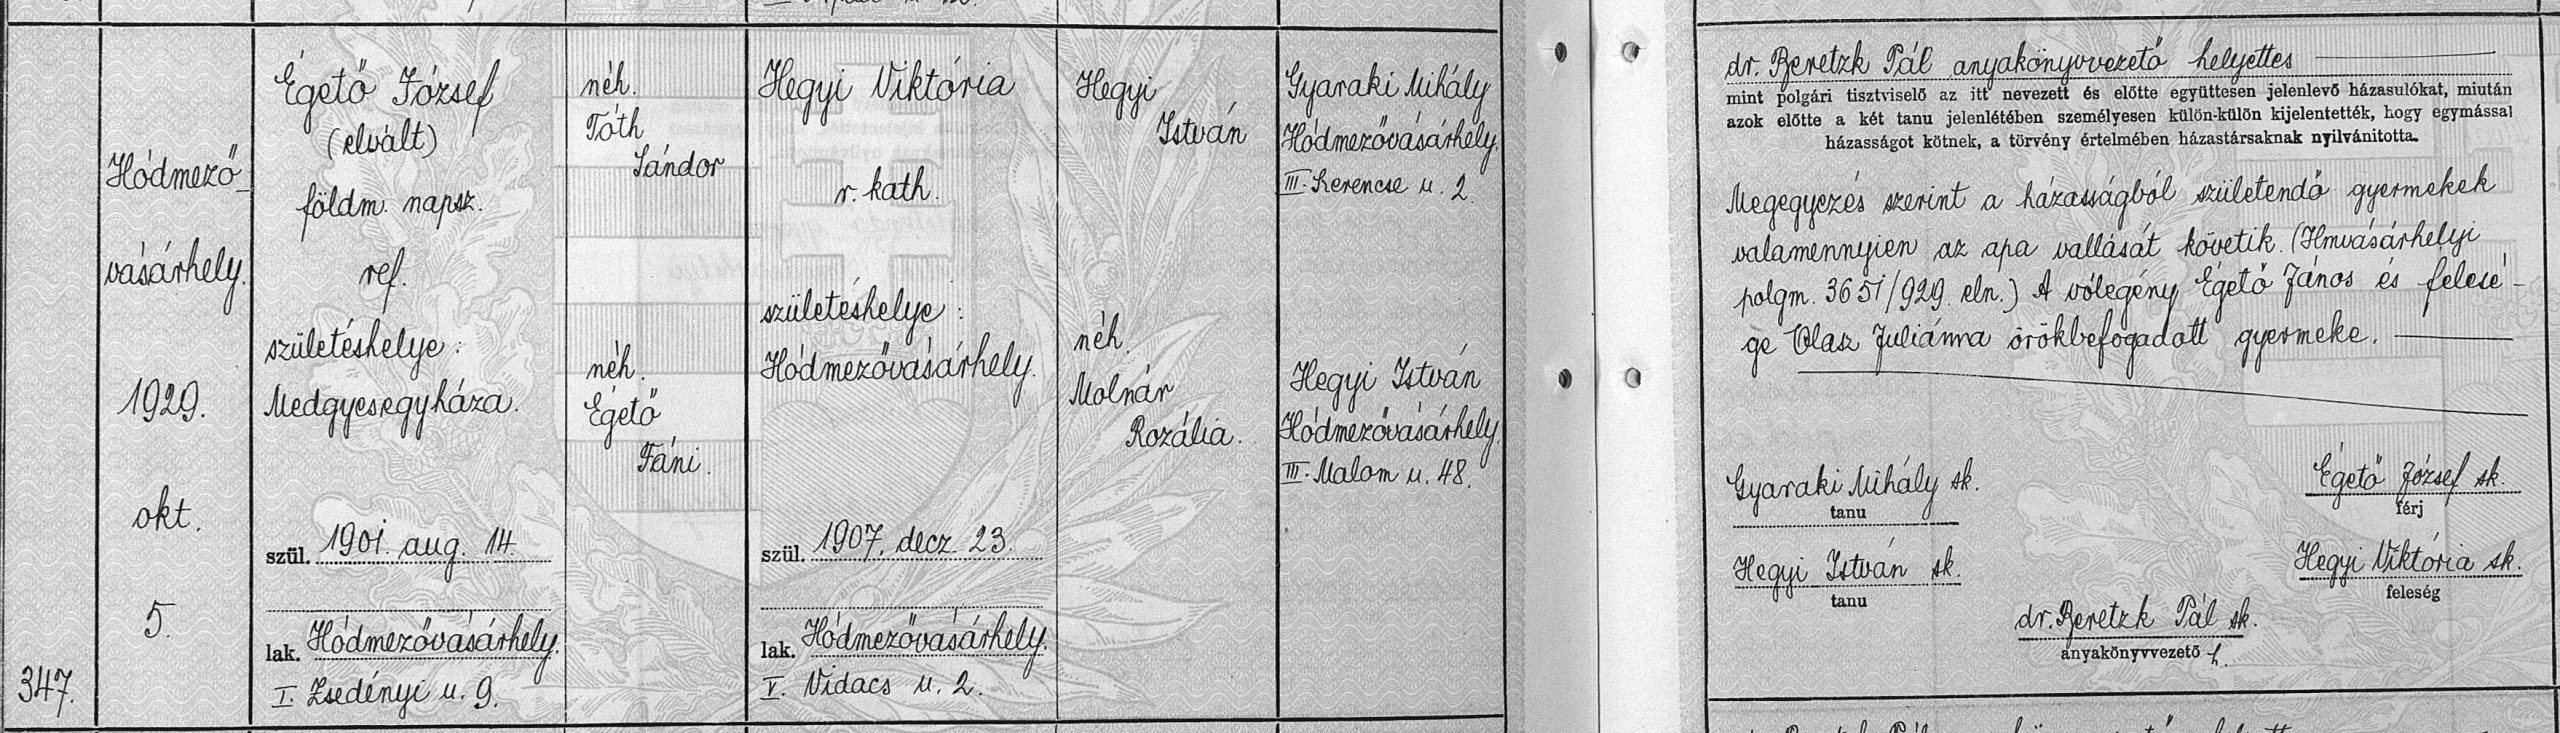 347.
Hódmező-
vásárhely.
1929.
okt.
5.
Égető József
(elvált)
földm. napsz.
ref.
születéshelye:
Medgyesegyháza.
szül. 1901. aug. 14.
lak. Hódmezővásárhely.
I. Zsedényi u. 9.
néh.
Tóth
Sándor
néh.
Égető
Fáni.
Hegyi Viktória
r. kath.
születéshelye:
Hódmezővásárhely.
szül. 1907. decz. 23.
lak. Hódmezővásárhely.
V. Vidacs u. 2.
Hegyi
István
néh.
Molnár
Rozália.
Gyaraki Mihály
Hódmezővásárhely.
III. Szerencse u. 2.
Hegyi István
Hódmezővásárhely.
III. Malom u. 48.
dr. Beretzk Pál anyakönyvvezető helyettes
mint polgári tisztviselő az itt nevezett és előtte együttesen jelenlevő házasulókat, miután
azok előtte a két tanu jelenlétében személyesen külön-külön kijelentették, hogy egymással
házasságot kötnek, a törvény értelmében házastársaknak nyilvánitotta.
Megegyezés szerint a házasságból születendő gyermekek
valamennyien az apa vallását követik. (Hmvásárhelyi
polgm. 3651/929. eln.) A vőlegény Égető János és felesé-
ge Olasz Juliánna örökbefogadott gyermeke.
Gyaraki Mihály sk.
tanu
Égető József sk.
férj
Hegyi István sk.
tanu
Hegyi Viktória sk.
feleség
dr. Beretzk Pál sk.
anyakönyvvezető h.